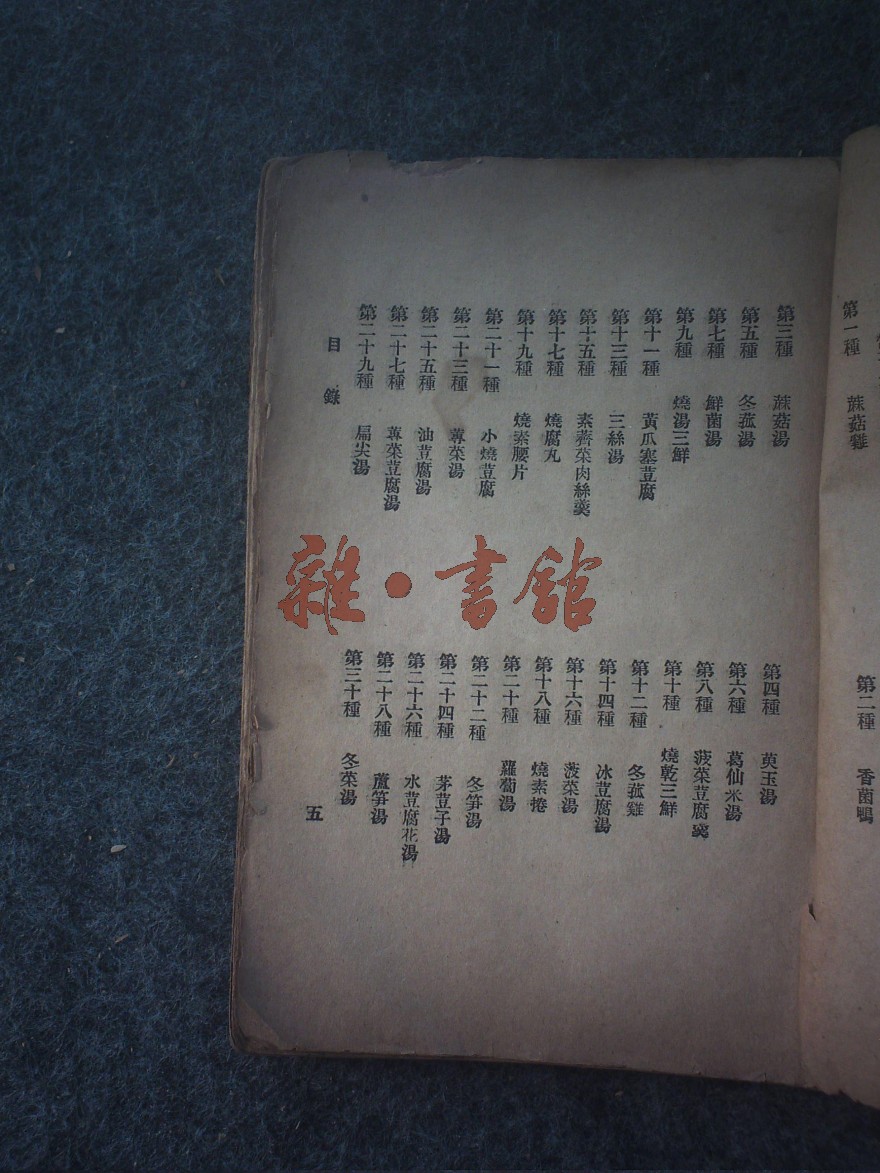 第一種　蔴菇雞
第二種　香菌鴨
第三種　蔴菇湯
第四種　萸玉湯
第五種　冬菰湯
第六種　葛仙米湯
第七種　鮮菌湯
第八種　菠菜荳腐羹
第九種　燒湯三鮮
第十種　燒乾三鮮
第十一種　黃瓜塞荳腐
第十二種　冬菰雞
第十三種　三絲湯
第十四種　冰荳腐湯
第十五種　素薺菜肉絲羹
第十六種　菠菜湯
第十七種　燒腐丸
第十八種　燒素捲
第十九種　燒素腰片
第二十種　蘿蔔湯
第二十一種　小燒荳腐
第二十二種　冬笋湯
第二十三種　蓴菜湯
第二十四種　茅荳子湯
第二十五種　油荳腐湯
第二十六種　水荳腐花湯
第二十七種　蓴菜荳腐湯
第二十八種　蘆笋湯
第二十九種　扁尖湯
第三十種　冬菜湯
目錄
五
雜·書館